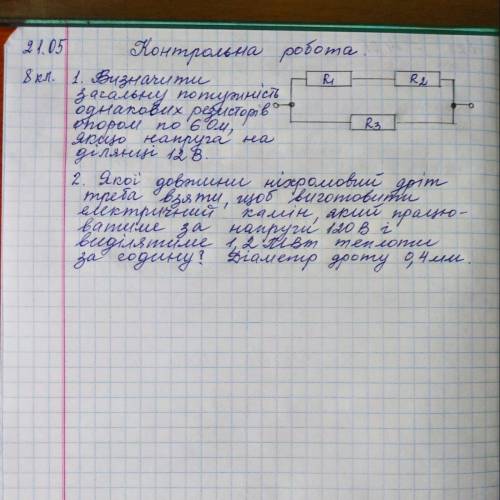 21.05 Контрольна робота.
8 кл. 1. Визначити
загальну потужність
однакових резисторів
опором по 6 Ом,
якщо напруга на
ділянці 12 В.
R1 R2
R3
2. Якої довжини ніхромовий дріт
треба взяти, щоб виготовити
електричний камін, який працю-
ватиме за напруги 120 В і
виділятиме 1,2 МДж теплоти
за годину? Діаметр дроту 0,4 мм.